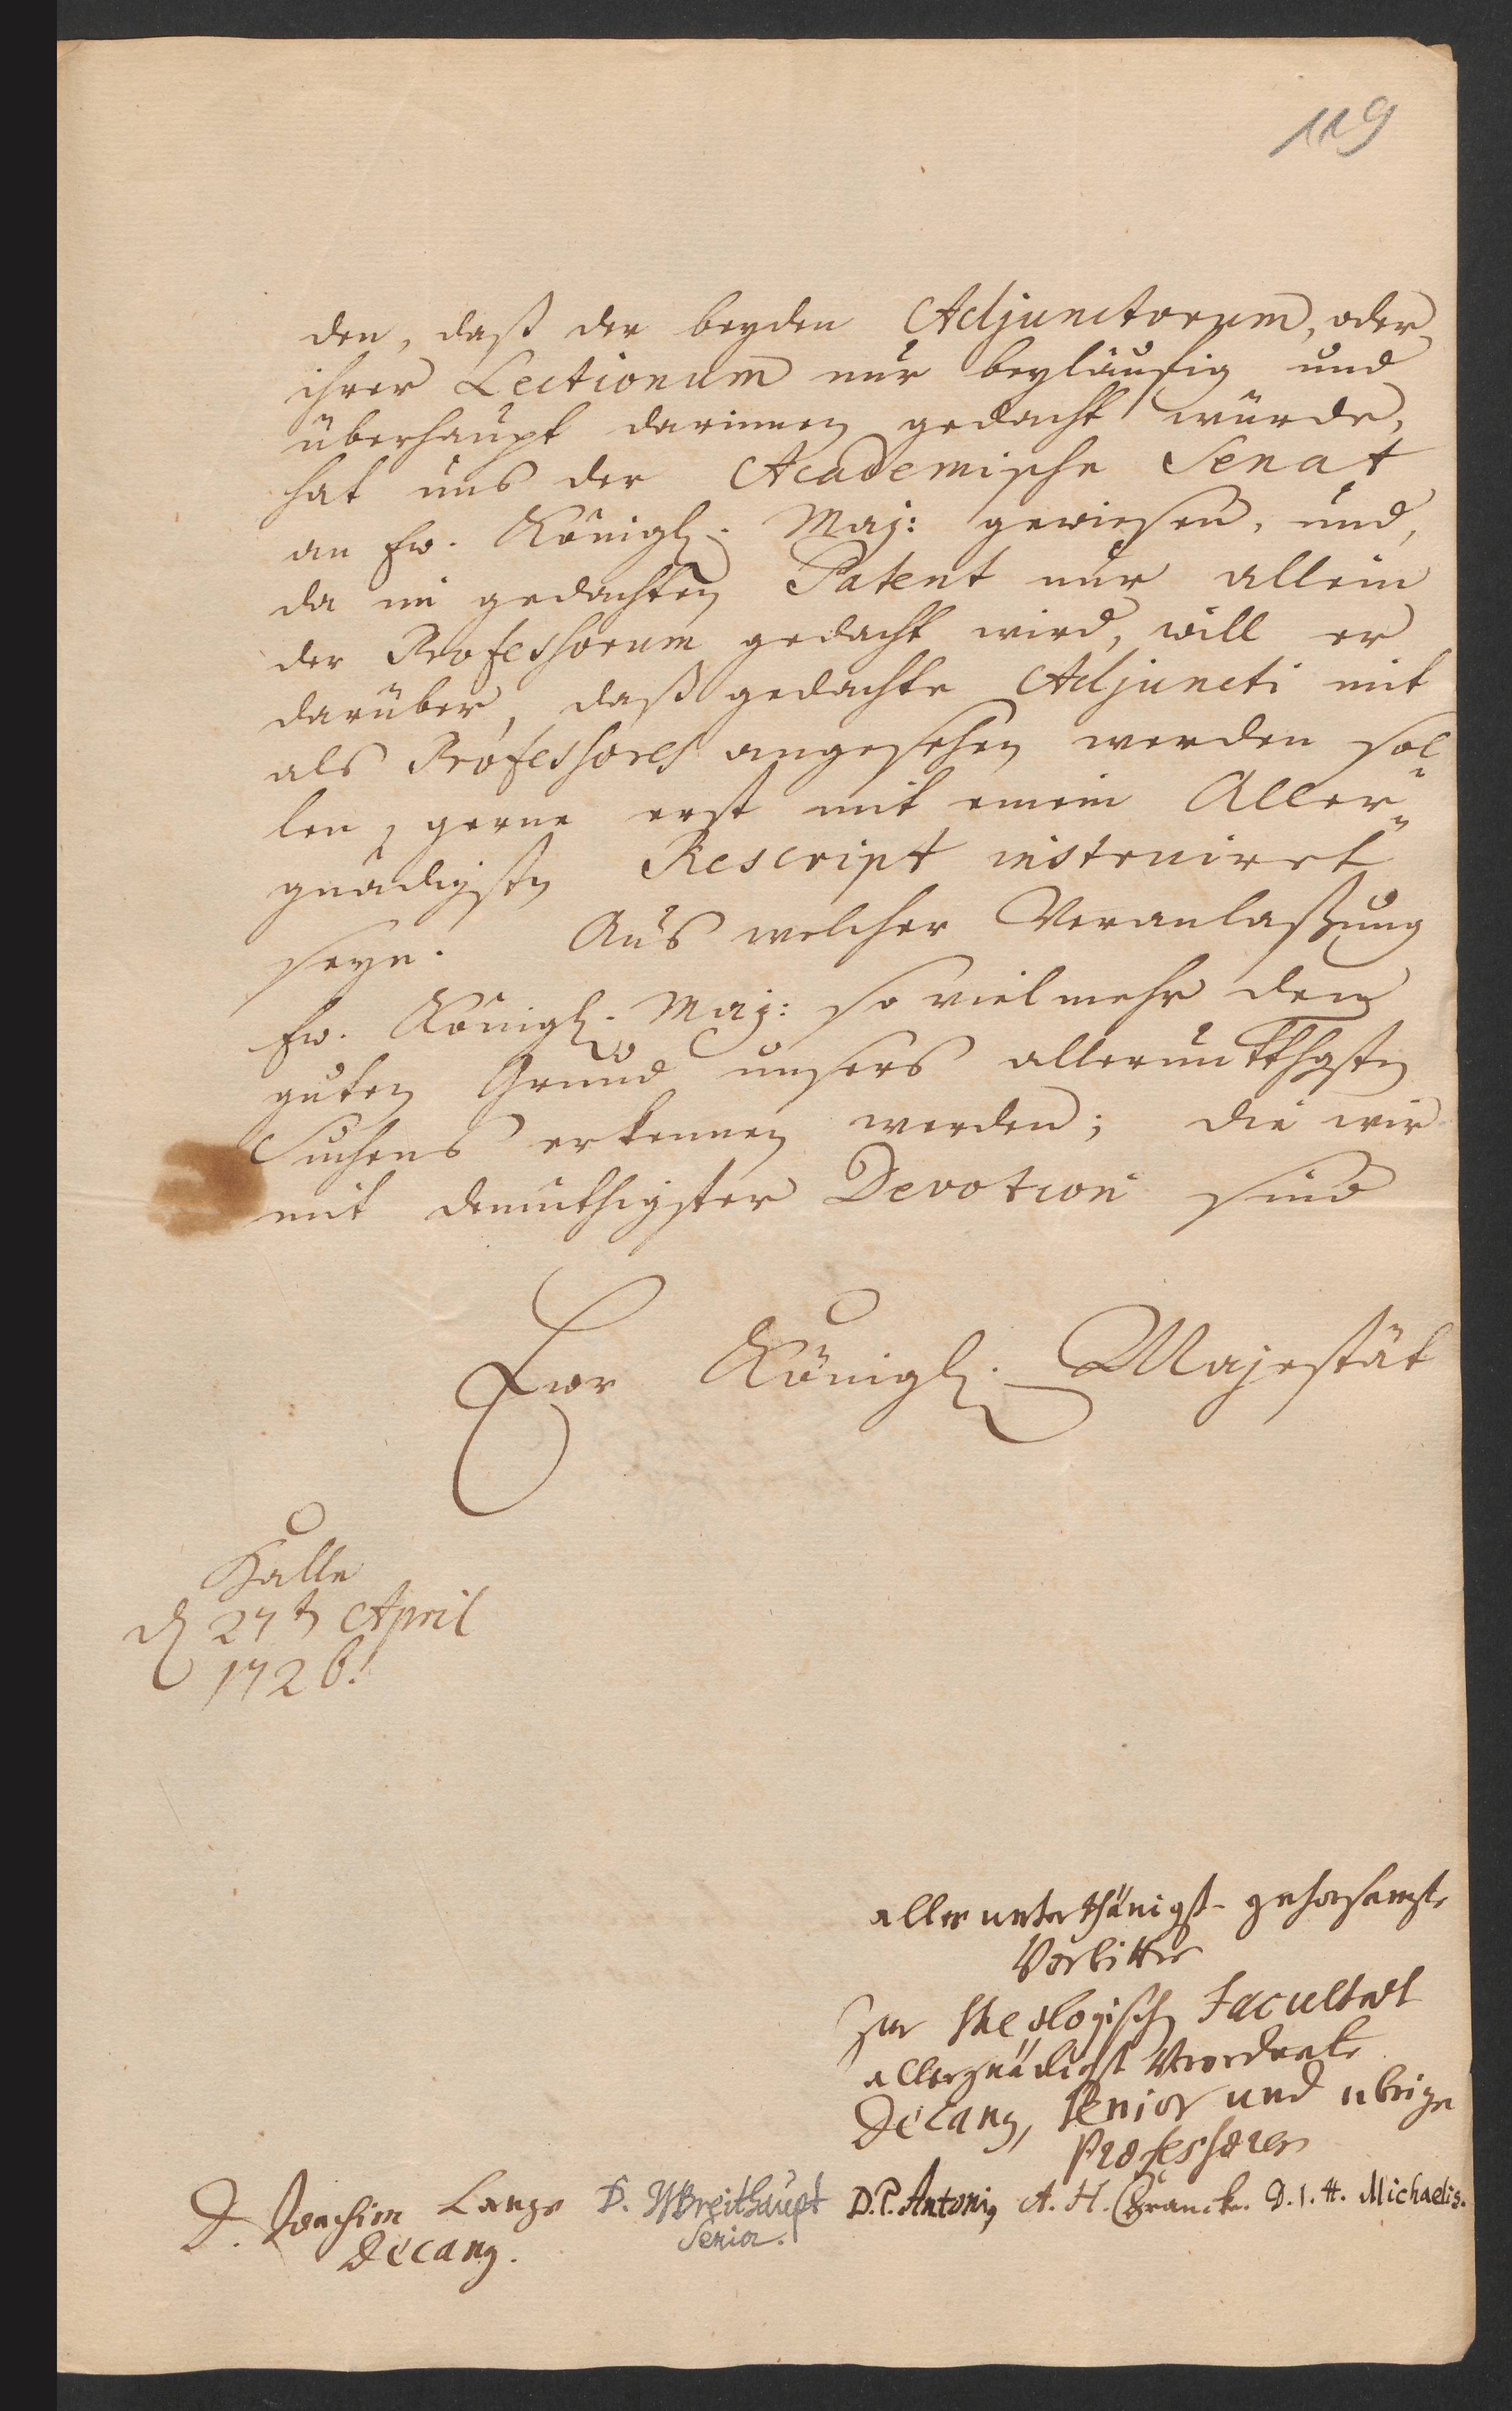 119
den, daß der beyden Adjunctorum, oder
ihrer Lectionum nur beyläufig und
überhaupt darinnen gedacht würde,
hat uns der Academische Senat
an Ew. Königl. Maj: gewiesen, und,
da im gedachten Patent nur allein
der Professorum gedacht wird, will er
darüber, daß gedachte Adjuncti mit
als Professores angesehen werden sol„
len, gerne erst mit einem Aller„
gnädigsten Rescript instruiret
seyn. Aus welcher Veranlaßung
Ew. Königl. Maj: so viel mehr den
guten Grund unsers alleruntthgsten
Suchens erkennen werden; die wir
mit demüthigster Devotion sind
Ewr Königl. Majestät
Halle
d 27t April
1726.
allerunterthänigst-gehorsamste
Vorbitter
zur theologischen Facultaet
allergnädigst Verordnete
Decanus, Senior und übrige
Professores
D. Joachim Lange D. JJBreithaupt D. P. Antonius A. H. Francke. D. I. H. Michaelis.
Decanus. Senior.